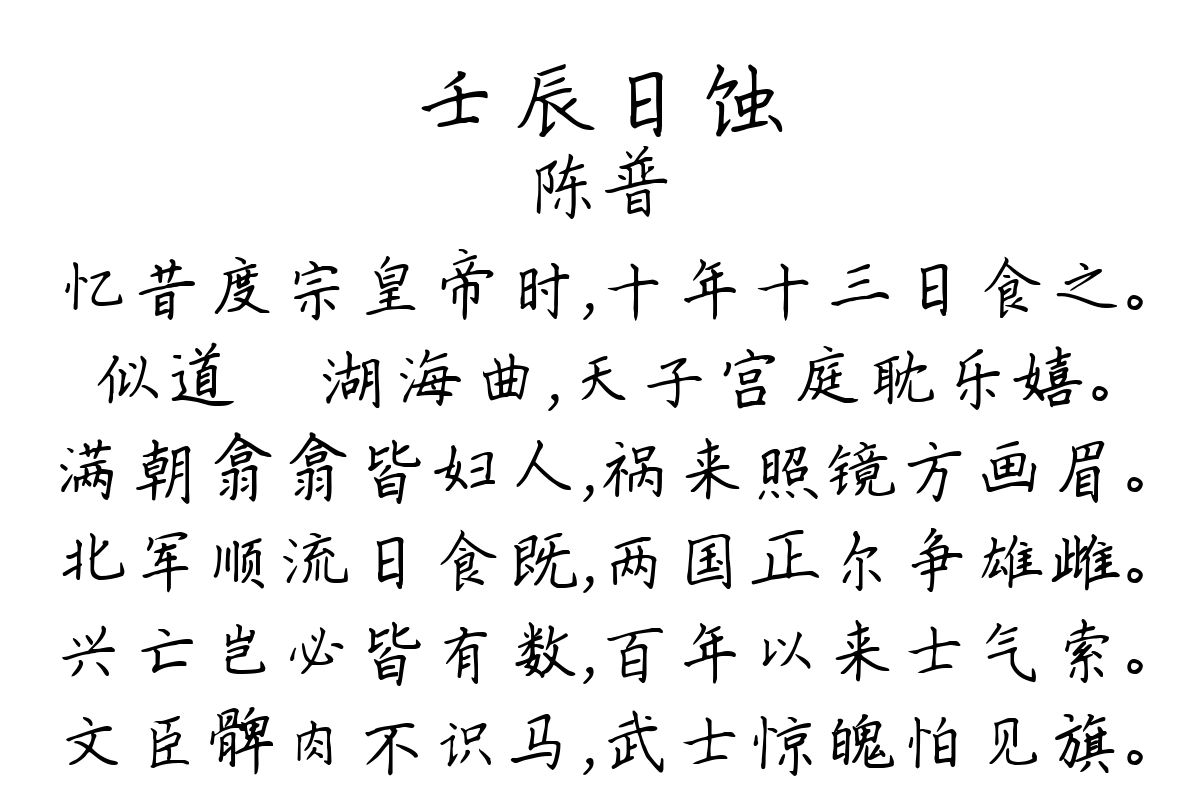 壬辰日蚀
陈普
忆昔度宗皇帝时,十年十三日食之。
似道 湖海曲,天子宫庭耽乐嬉。
满朝翕翕皆妇人,祸来照镜方画眉。
北军顺流日食既,两国正尔争雄雌。
兴亡岂必皆有数,百年以来士气索。
文臣髀肉不识马,武士惊魄怕见旗。